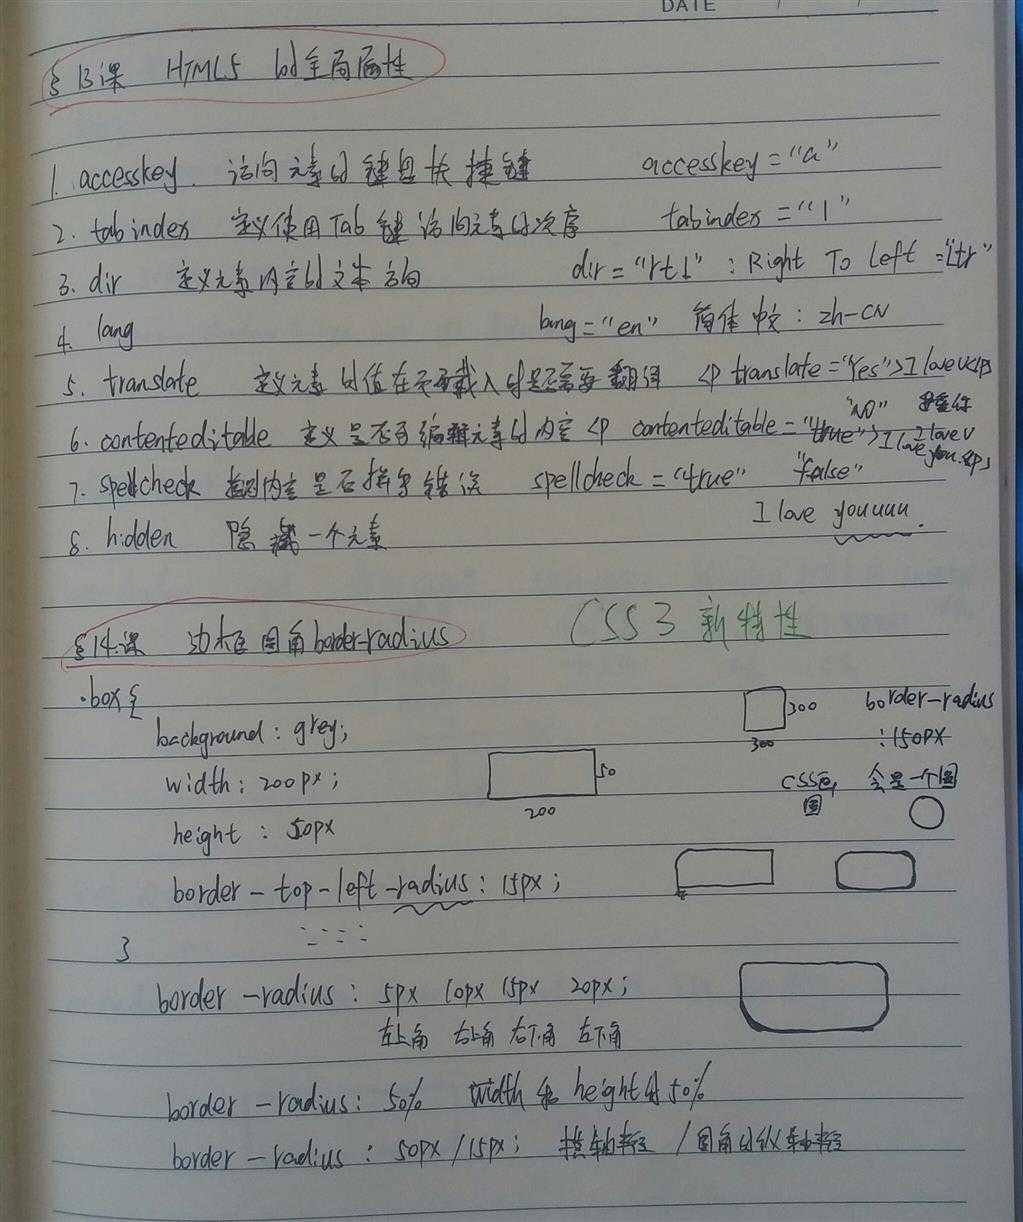 DATE
§13课 HTML5 的全局属性
1. accesskey. 访问元素的键盘快捷键 accesskey="a"
2. tabindex 定义使用Tab键访问元素的次序 tabindex="1"
3. dir 定义元素内容的文本方向 dir="rtl" : Right To left ="ltr"
4. lang lang="en" 简体中文: zh-CN
5. translate 定义元素的值在页面载入时是否需要翻译 <p translate="Yes">I love u<p>
"NO"
6. contenteditable 定义是否可编辑元素的内容 <p contenteditable="true">I love you.<p>
I love U
7. spellcheck 检测内容是否拼字错误 spellcheck="true" "false"
I love youuuu.
8. hidden 隐藏一个元素
CSS3 新特性
§14课 边框圆角border-radius
.box{
background: grey;
300 border-radius
300 :150px
width: 200px; 50
CSS画圆 会是一个圆
200
height: 50px
border-top-left-radius: 15px;
}
border-radius: 5px 10px 15px 20px;
左上角 右上角 右下角 左下角
border-radius: 50% width和height的50%
border-radius: 50px/15px; 横轴半径 /圆角的纵轴半径